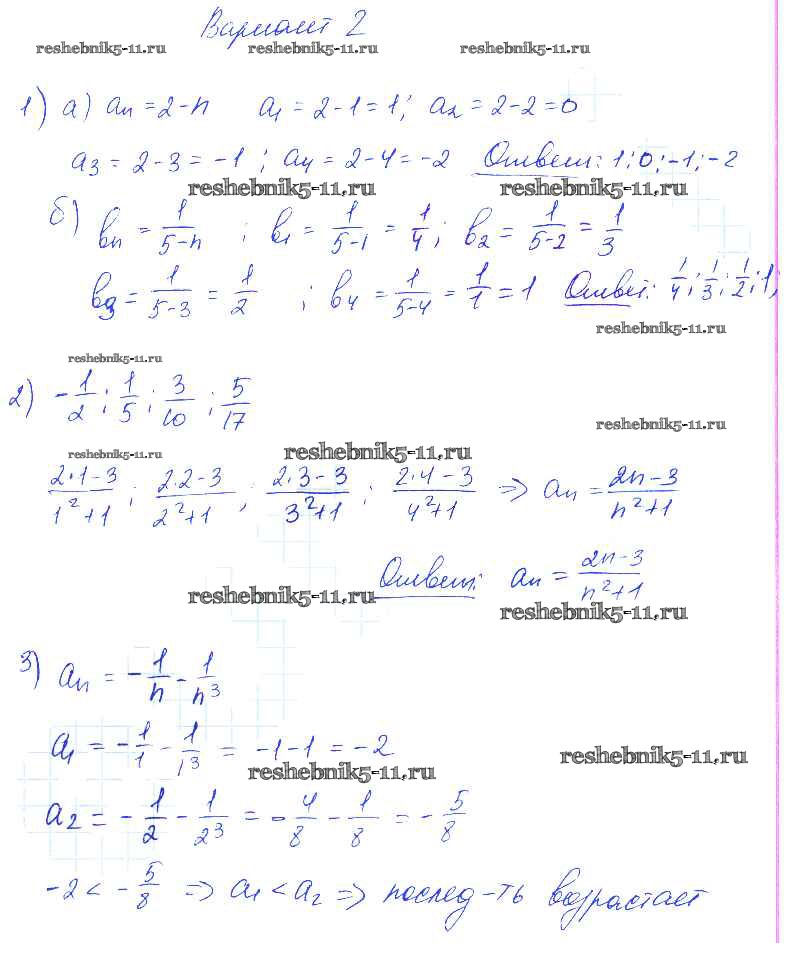 Вариант 2
reshebnik5-11.ru reshebnik5-11.ru reshebnik5-11.ru
1) а) aₙ = 2-n a₁ = 2-1 = 1; a₂ = 2-2 = 0
a₃ = 2-3 = -1; a₄ = 2-4 = -2 Ответ: 1; 0; -1; -2
reshebnik5-11.ru reshebnik5-11.ru
б) bₙ = 1/(5-n); b₁ = 1/(5-1) = 1/4; b₂ = 1/(5-2) = 1/3
b₃ = 1/(5-3) = 1/2; b₄ = 1/(5-4) = 1/1 = 1 Ответ: 1/4; 1/3; 1/2; 1;
reshebnik5-11.ru
reshebnik5-11.ru
2) -1/2; 1/5; 3/10; 5/17
reshebnik5-11.ru
reshebnik5-11.ru reshebnik5-11.ru
(2·1-3)/(1²+1); (2·2-3)/(2²+1); (2·3-3)/(3²+1); (2·4-3)/(4²+1) => aₙ = (2n-3)/(n²+1)
Ответ: aₙ = (2n-3)/(n²+1)
reshebnik5-11.ru reshebnik5-11.ru
3) aₙ = -1/n - 1/n³
a₁ = -1/1 - 1/1³ = -1-1 = -2
reshebnik5-11.ru reshebnik5-11.ru
a₂ = -1/2 - 1/2³ = -4/8 - 1/8 = -5/8
-2 < -5/8 => a₁ < a₂ => послед-ть возрастает